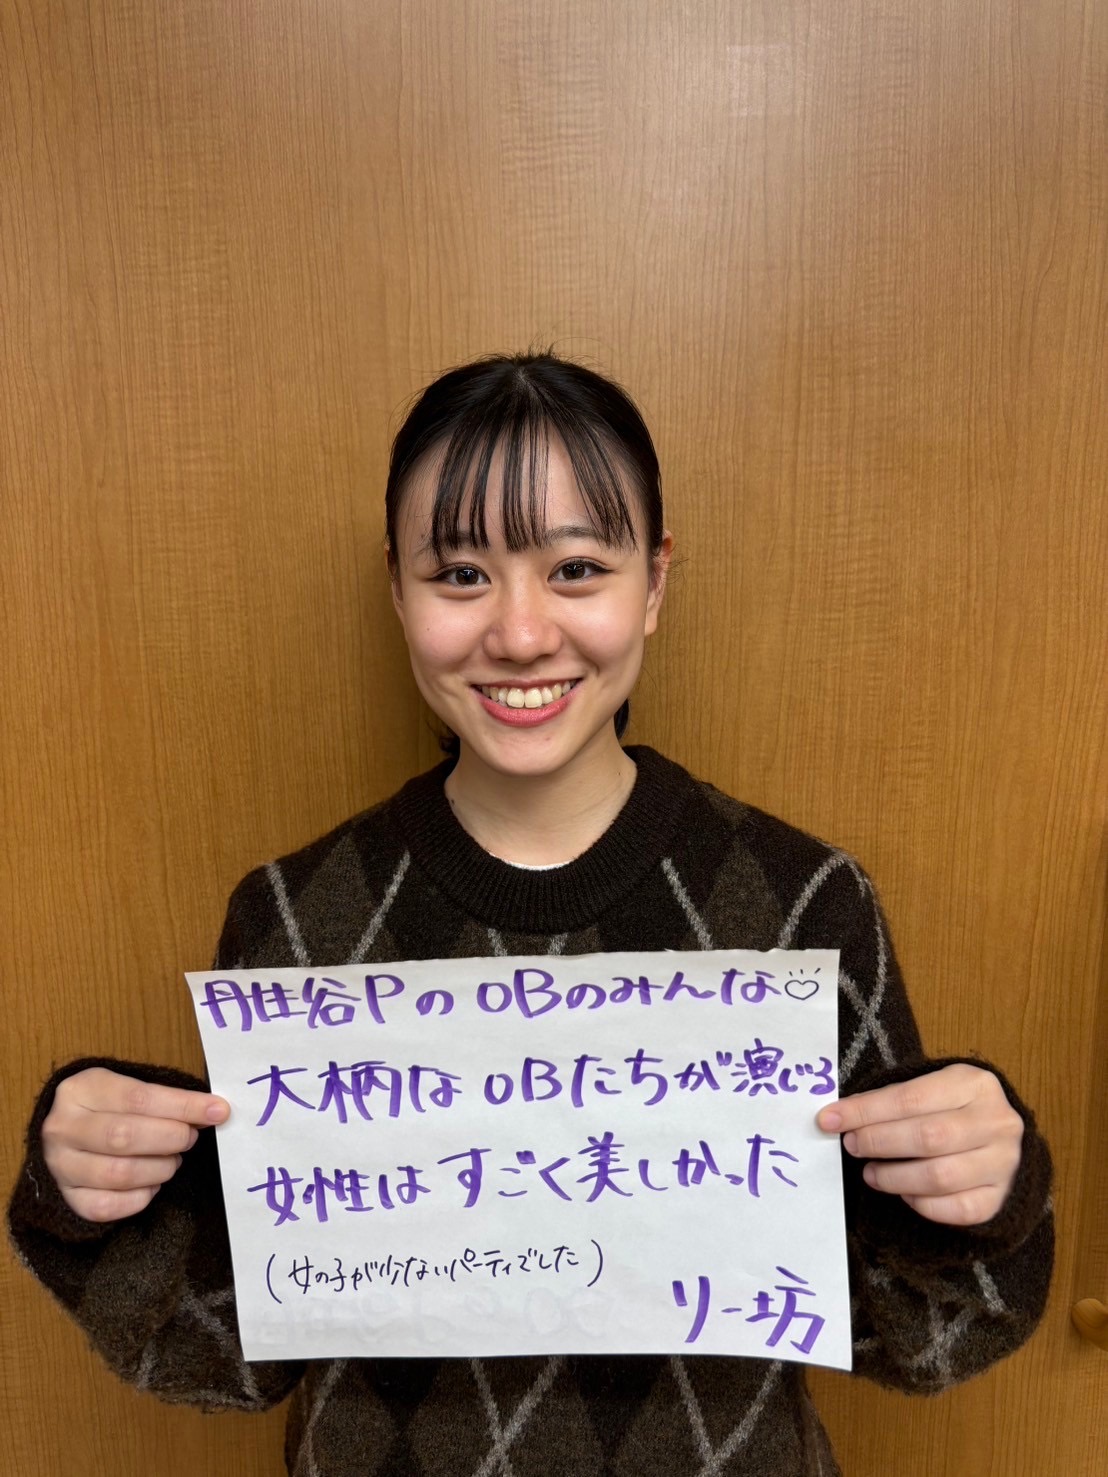 丹生谷PのOBのみんな♡
大柄なOBたちが演じる
女性はすごく美しかった
(女の子が少ないパーティでした)
リー坊